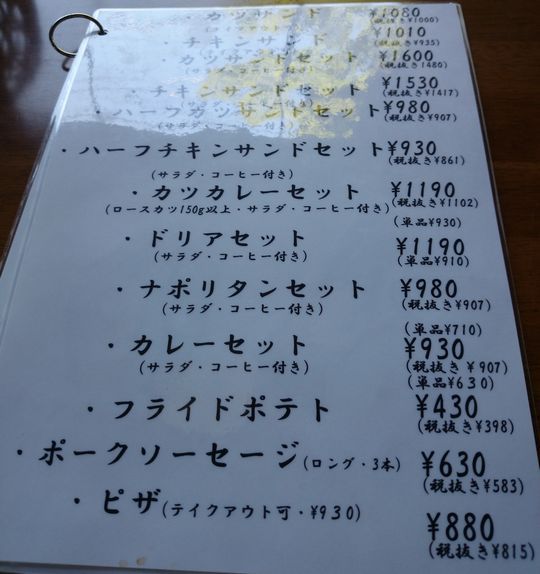 ・カツサンド ¥1080
(テイクアウト可) (税抜き¥1000)
・チキンサンド ¥1010
(税抜き¥935)
・カツサンドセット ¥1600
(サラダ・コーヒー付き) (税抜き1480)
チキンサンドセット ¥1530
(サラダ・コーヒー付き) (税抜き¥1417)
・ハーフカツサンドセット ¥980
(サラダ・コーヒー付き) (税抜き¥907)
・ハーフチキンサンドセット ¥930
(サラダ・コーヒー付き) (税抜き¥861)
・カツカレーセット ¥1190
(ロースカツ150g以上・サラダ・コーヒー付き) (税抜き¥1102)
(単品¥930)
・ドリアセット ¥1190
(サラダ・コーヒー付き) (単品¥910)
・ナポリタンセット ¥980
(サラダ・コーヒー付き) (税抜き¥907)
(単品¥710)
・カレーセット ¥930
(サラダ・コーヒー付き) (税抜き¥907)
(単品¥630)
・フライドポテト ¥430
(税抜き¥398)
・ポークソーセージ(ロング・3本) ¥630
(税抜き¥583)
・ピザ(テイクアウト可・¥930) ¥880
(税抜き¥815)